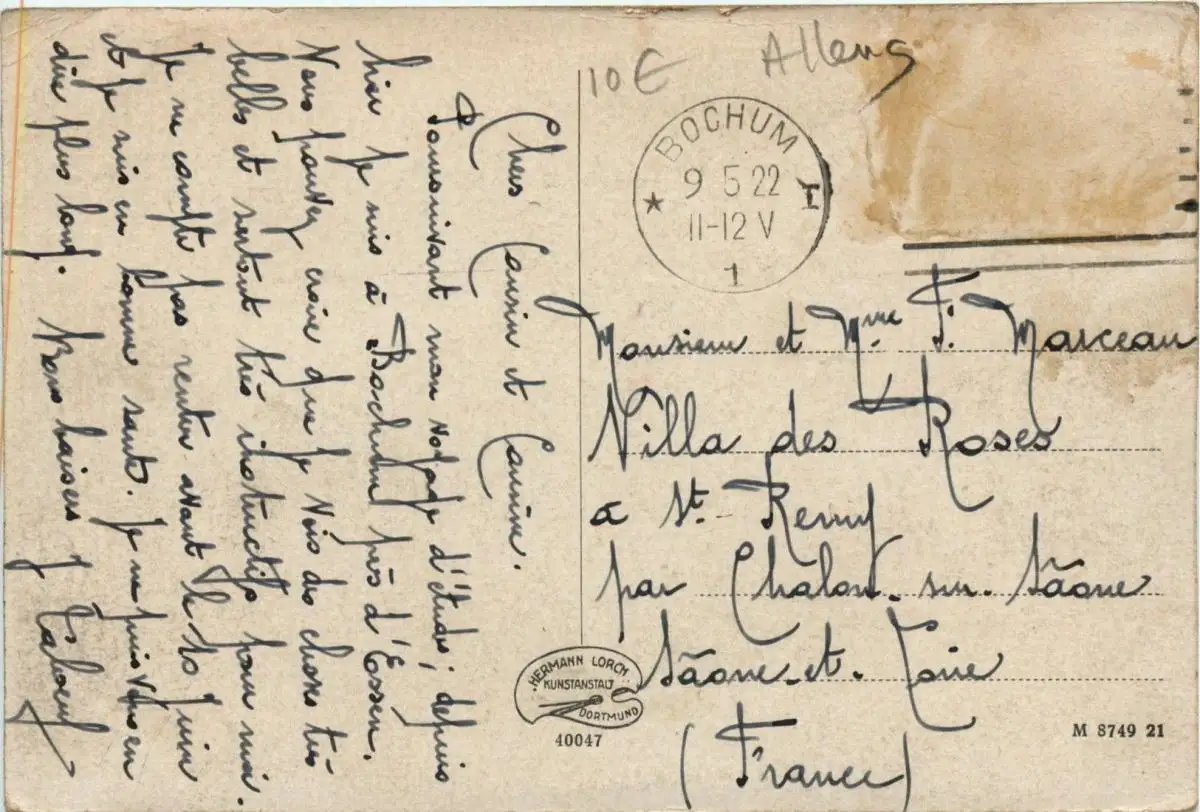 Chers Cousin et Cousine.
Poursuivant mon voyage d'étude, depuis
hier je suis à Bochum près d'Essen.
Vous pouvez croire que je vois des choses très
belles et surtout très instructifs pour moi.
Je ne compte pas rentrer avant le 10 juin
et je suis en bonne santé. Je ne puis vous en
dire plus long. Bons baisers
10 €
Alleng
BOCHUM
9 5 22
11-12 V
1
Monsieur et Mme F. Marceau
Villa des Roses
à St. Remy
par Châlon-sur-Sâone
Sâone-et-Loire
(France)
HERMANN LORCH
KUNSTANSTALT
DORTMUND
40047
M 8749 21